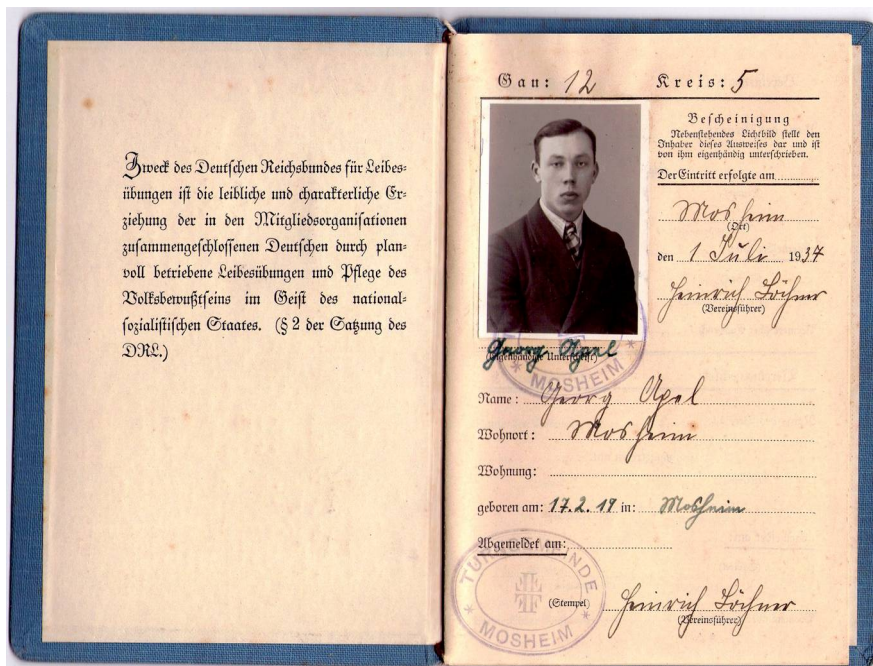 Zweck des Deutschen Reichsbundes für Leibes-
übungen ist die leibliche und charakterliche Er-
ziehung der in den Mitgliedsorganisationen
zusammengeschlossenen Deutschen durch plan-
voll betriebene Leibesübungen und Pflege des
Volksbewußtseins im Geist des national-
sozialistischen Staates. (§ 2 der Satzung des
DRL.)
Gau: 12 Kreis: 5
Bescheinigung
Nebenstehendes Lichtbild stellt den
Inhaber dieses Ausweises dar und ist
von ihm eigenhändig unterschrieben.
Der Eintritt erfolgte am
Mosheim
(Ort)
den 1 Juli 1937
Heinrich Löhner
(Vereinsführer)
Georg Apel
(Eigenhändige Unterschrift)
MOSHEIM
Name: Georg Apel
Wohnort: Mosheim
Wohnung:
geboren am: 17.2.19 in: Mosheim
Abgemeldet am:
MOSHEIM
(Stempel) Heinrich Löhner
(Vereinsführer)